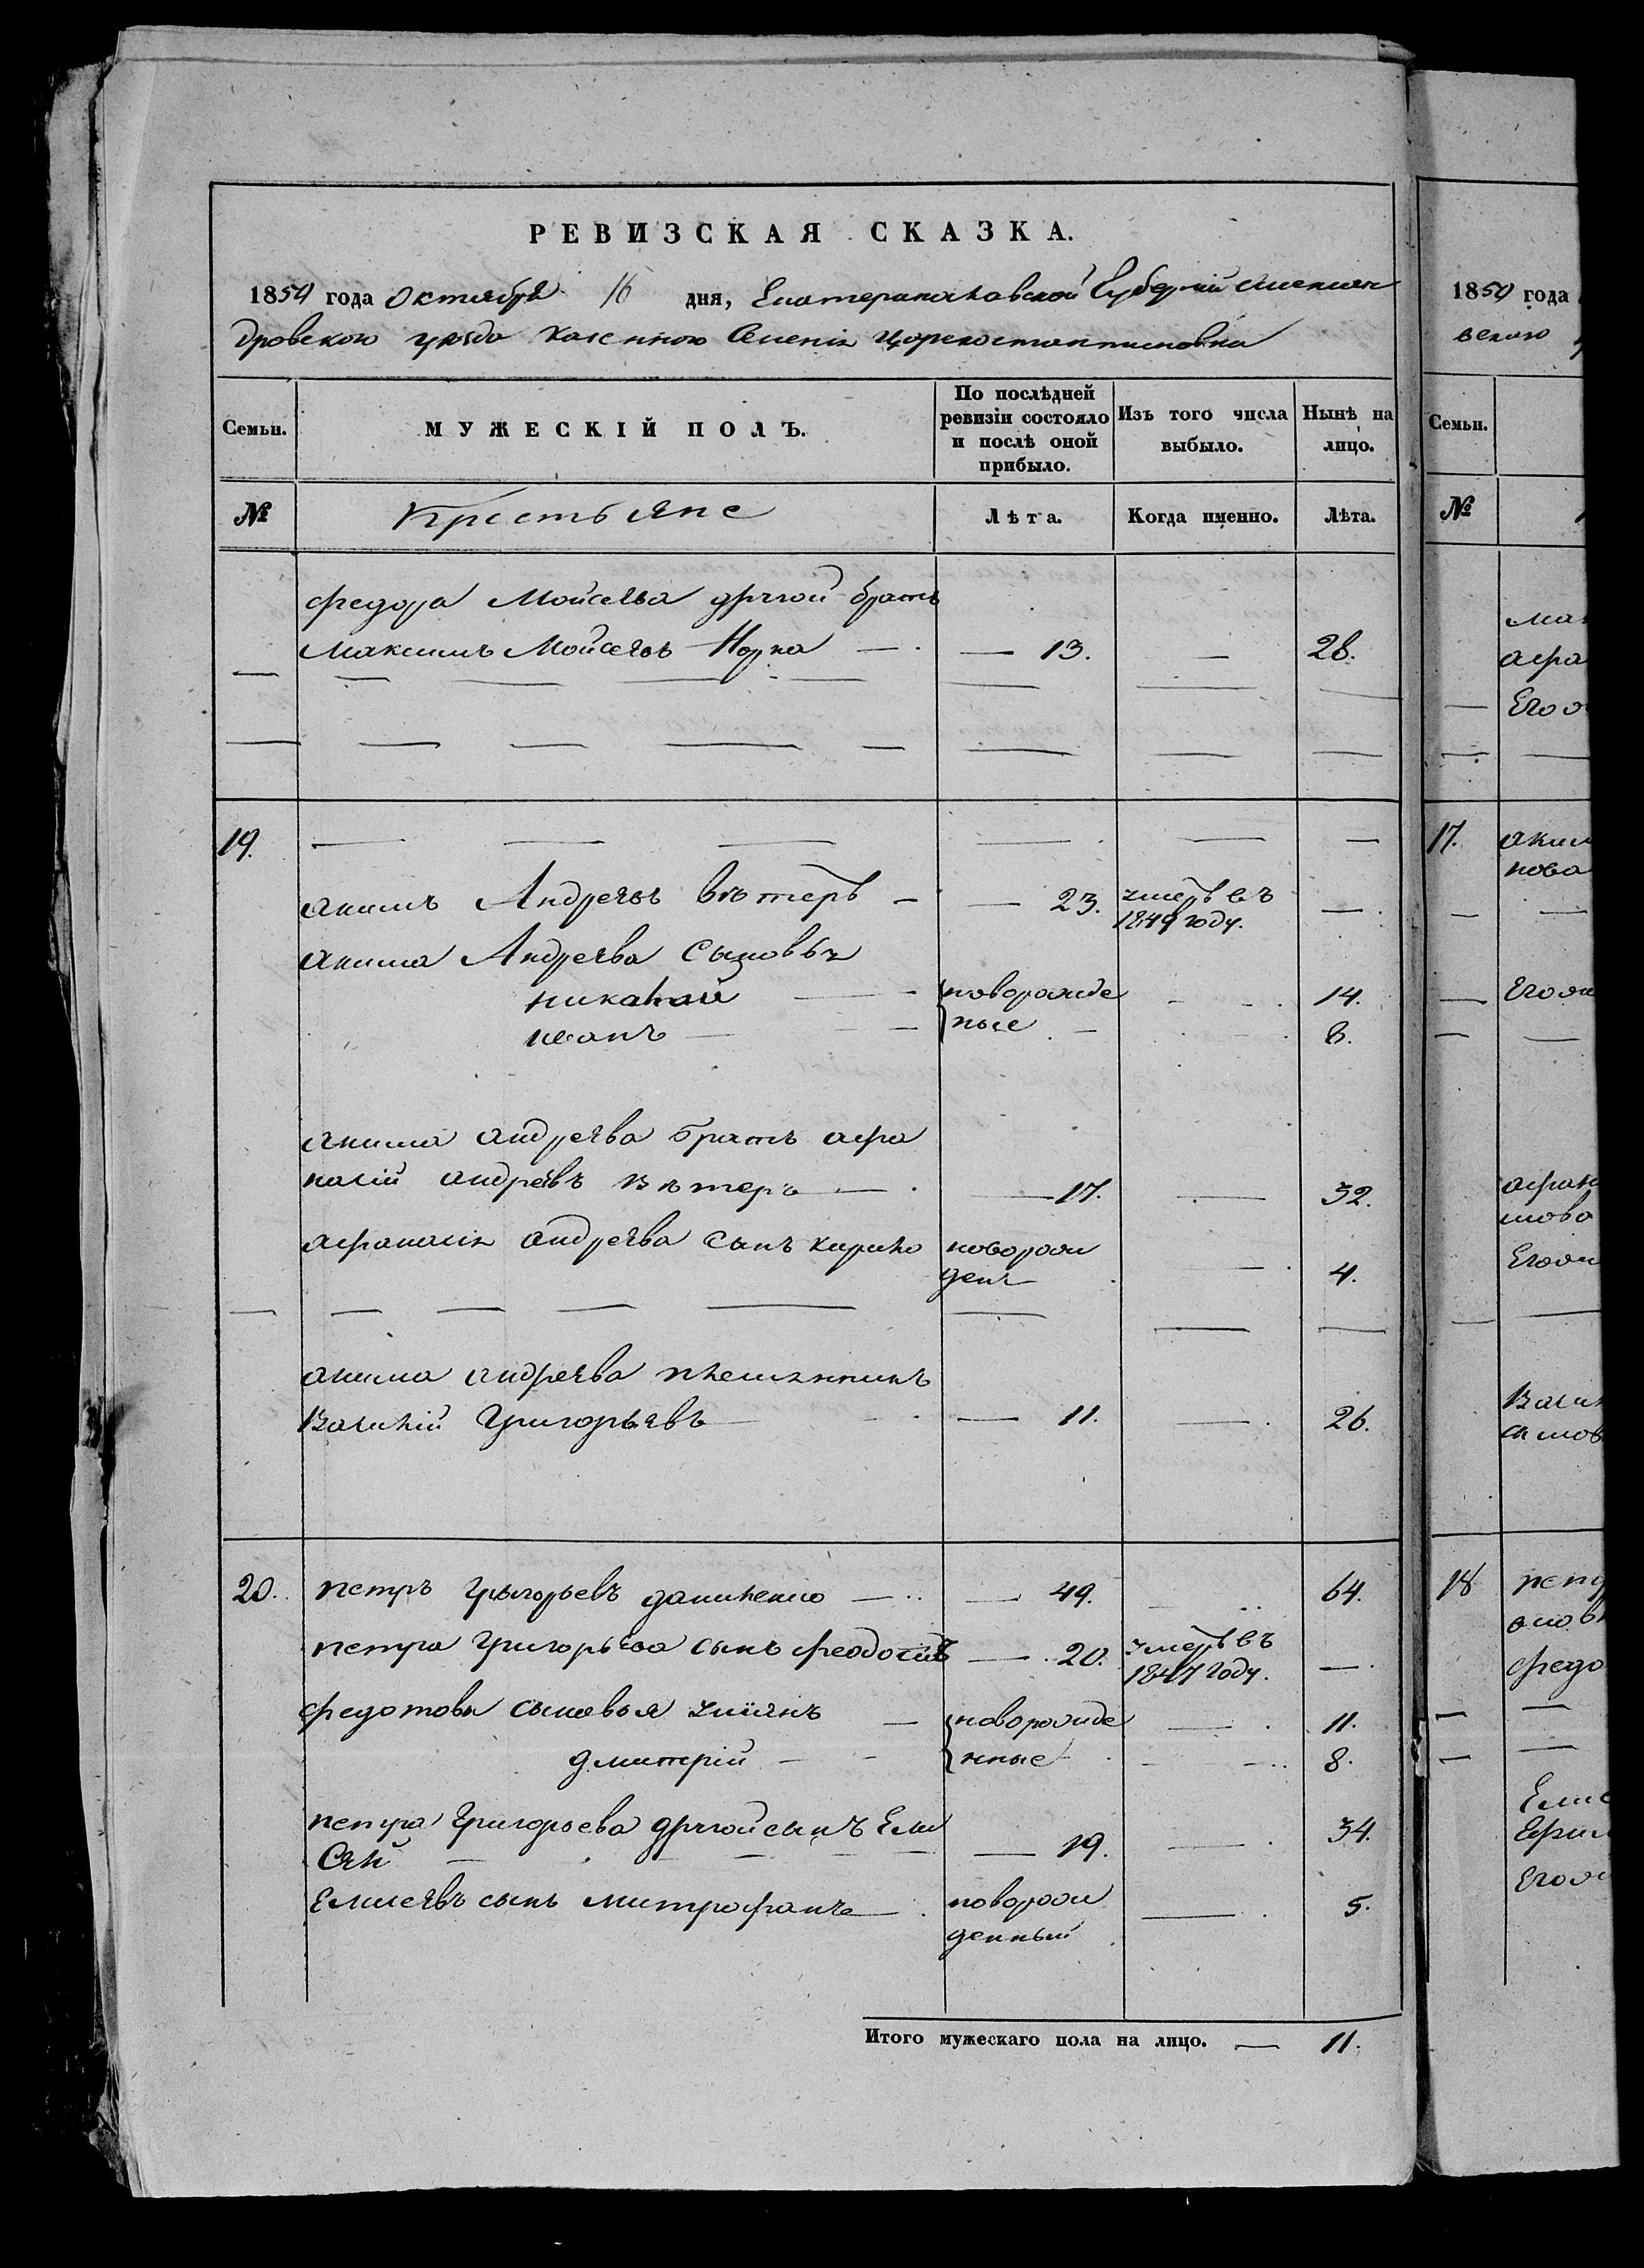 РЕВИЗСКАЯ СКАЗКА.
1854 года Октября 16 дня, Екатеринославской Губерніи Алексан
дровского уезда казенного Селенія Цареконстантиновка
Семьи.
МУЖЕСКІЙ ПОЛЪ.
По послѣдней
ревизіи состояло
и послѣ оной
прибыло.
Изъ того числа
выбыло.
Нынѣ на
лицо.
№
Крестьяне
Лѣта.
Когда именно.
Лѣта.
Федора Мойсеева другой братъ
Максимъ Мойсеевъ Норка — 13. — 28.
19.
Акимъ Андреевъ Вътеръ — 23. умеръ въ — 
1849 году.
Акима Андреева Сыновья
Николай новорожде 14.
Иванъ ные 8.
Акима Андреева братъ Афа
насій Андреевъ Вътеръ — 17. — 32.
Афанасія Андреева Сынъ Кирило новорож
денъ — 4.
Акима Андреева племянникъ
Василій Григорьевъ — 11. — 26.
20. Петръ Григорьевъ Данименко — 49. 64.
Петра Григорьева сынъ Феодосій — 20. умеръ въ —
1847 году.
Федотовы сыновья новорожде — 11.
Дмитрій нные 8.
Петра Григорьева другой сынъ Ели
Сей — 19. — 34.
Елисеевъ сынъ Митрофанъ новорож — 5.
денный
Итого мужескаго пола на лицо. — 11.
1854 года
Семьи.
№
17.
18